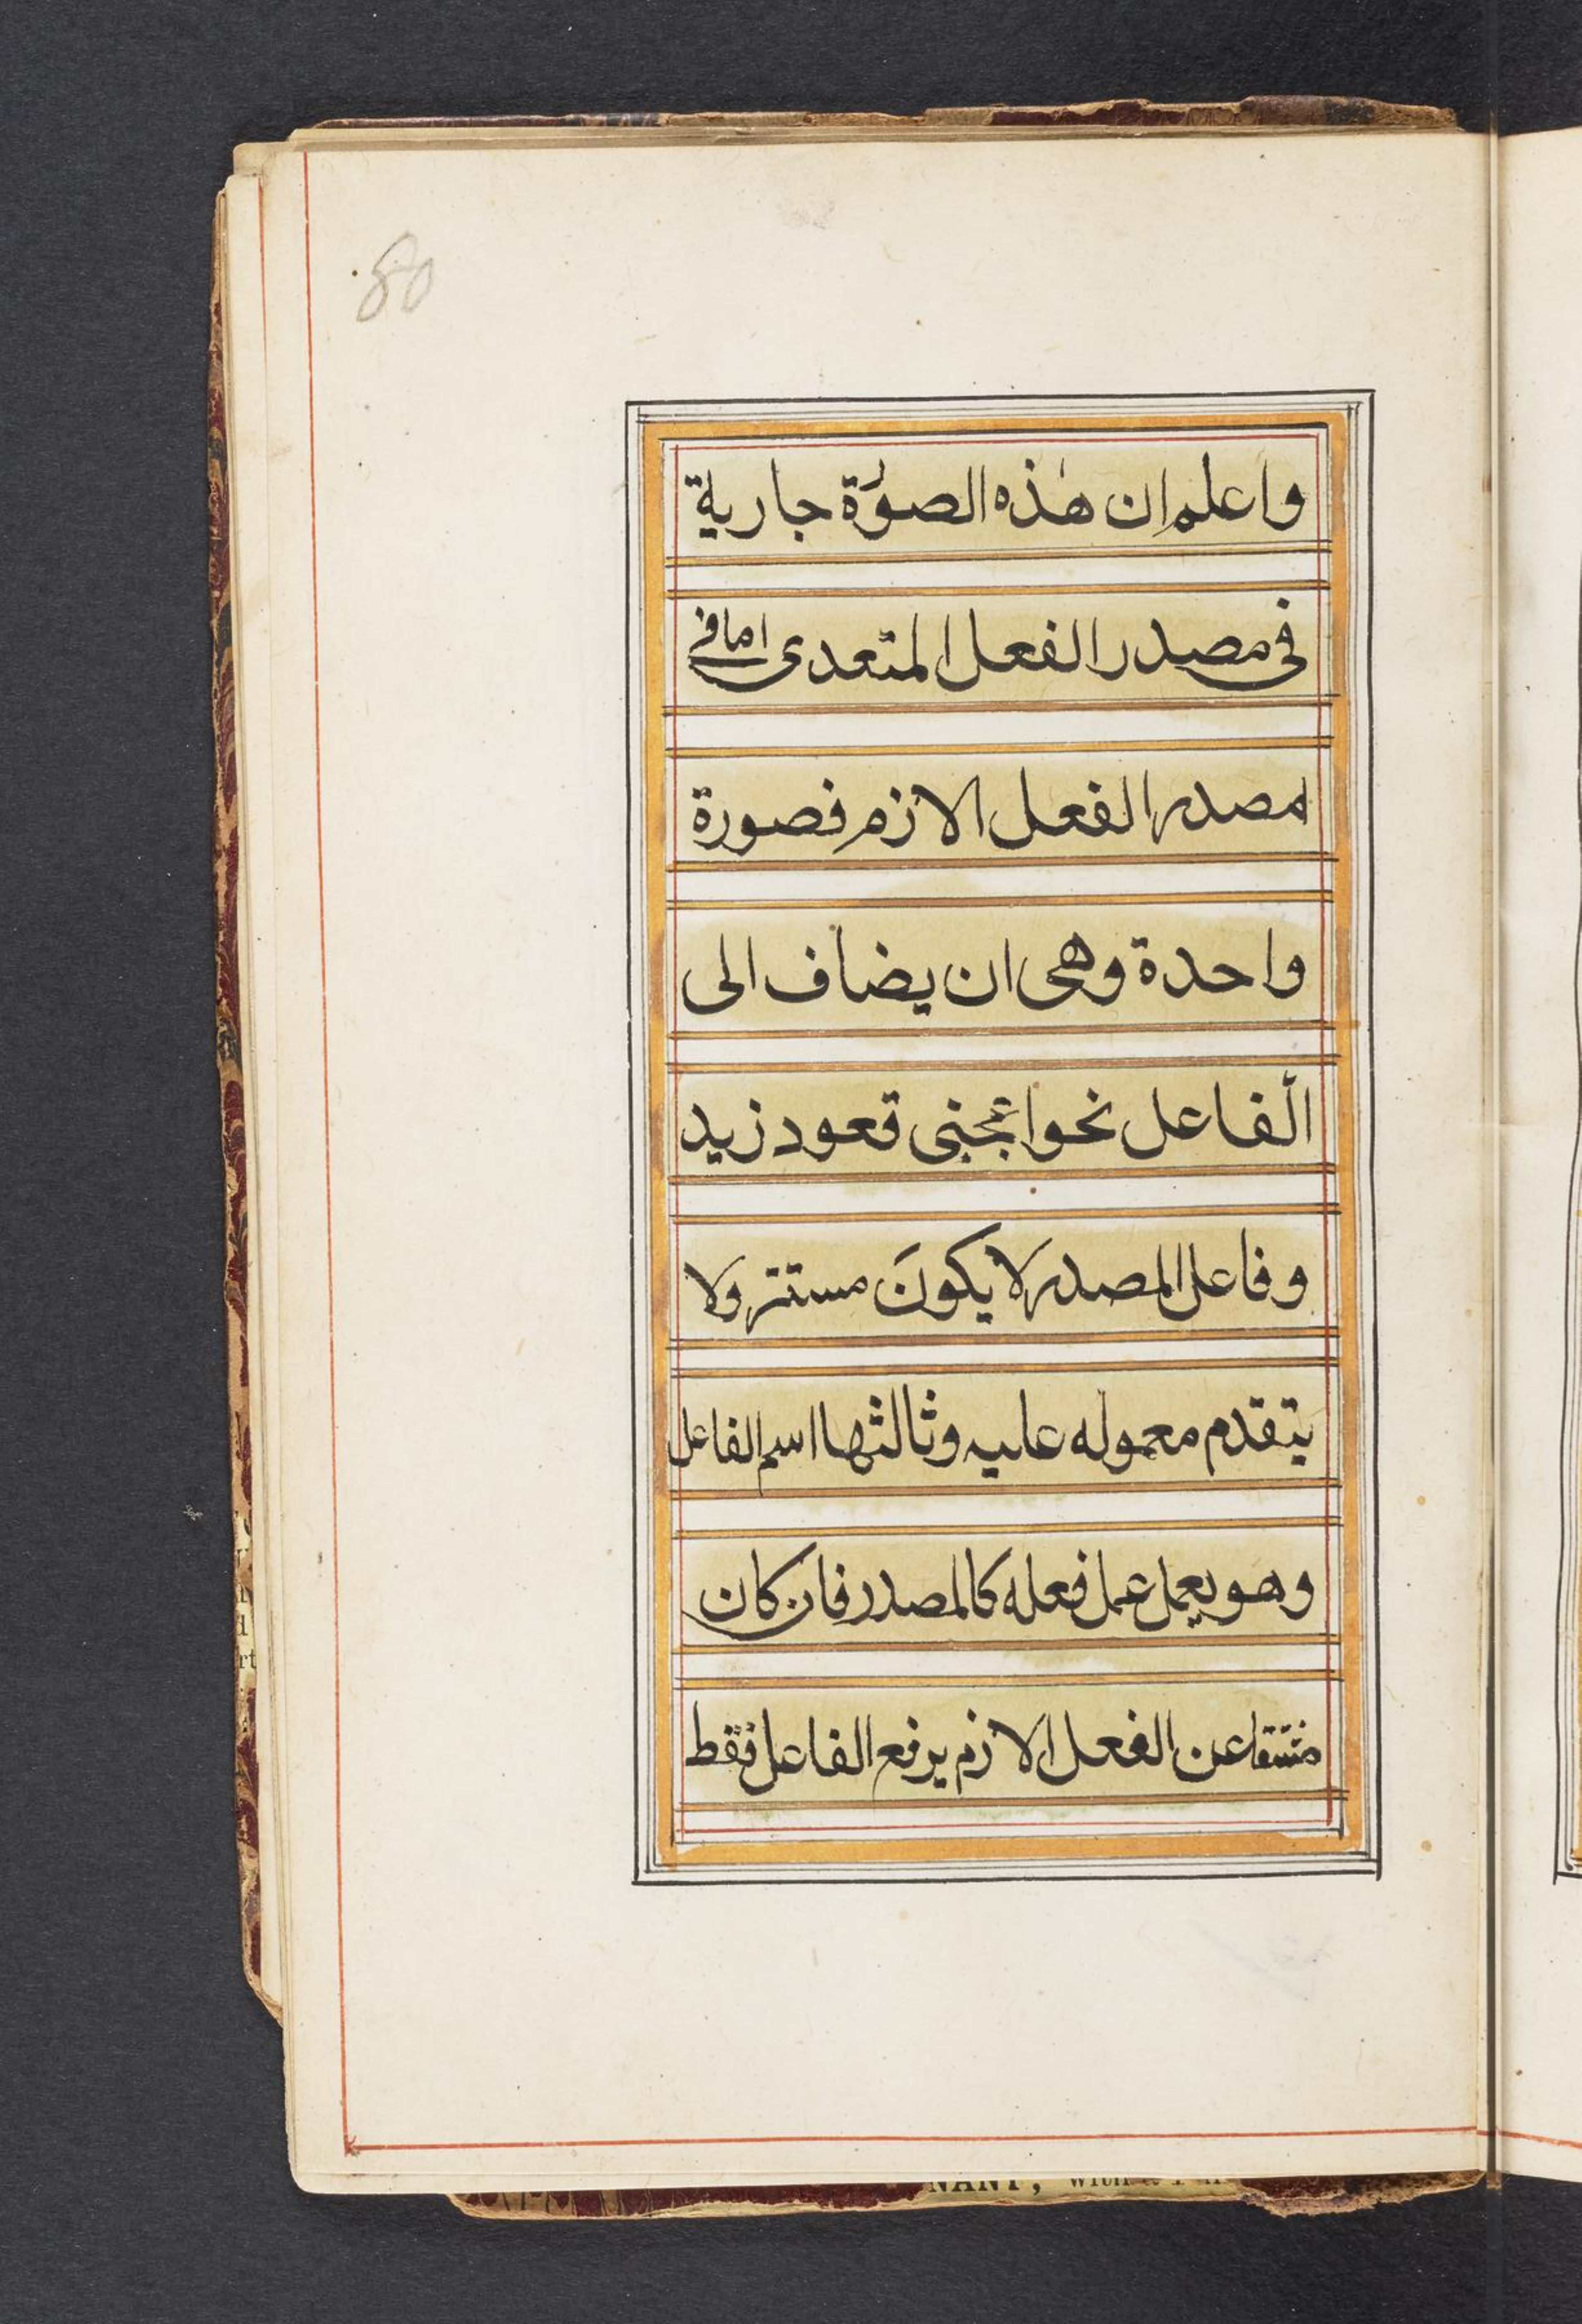 80
واعلم ان هٰذه الصورة جارية
فى مصدر الفعل المتعدى اما فى
مصدر الفعل الازم فصورة
واحدة وهى ان يضاف الى
الفاعل نحو اعجبنى قعود زيد
وفاعل المصدر لا يكونَ مستتر ولا
يتقدم معموله عليه وثالثها اسم الفاعل
وهو يعمل عمل فعله كالمصدر فان كان
مشتقا عن الفعل الازم يرفع الفاعل فقط
rt
NANT, with